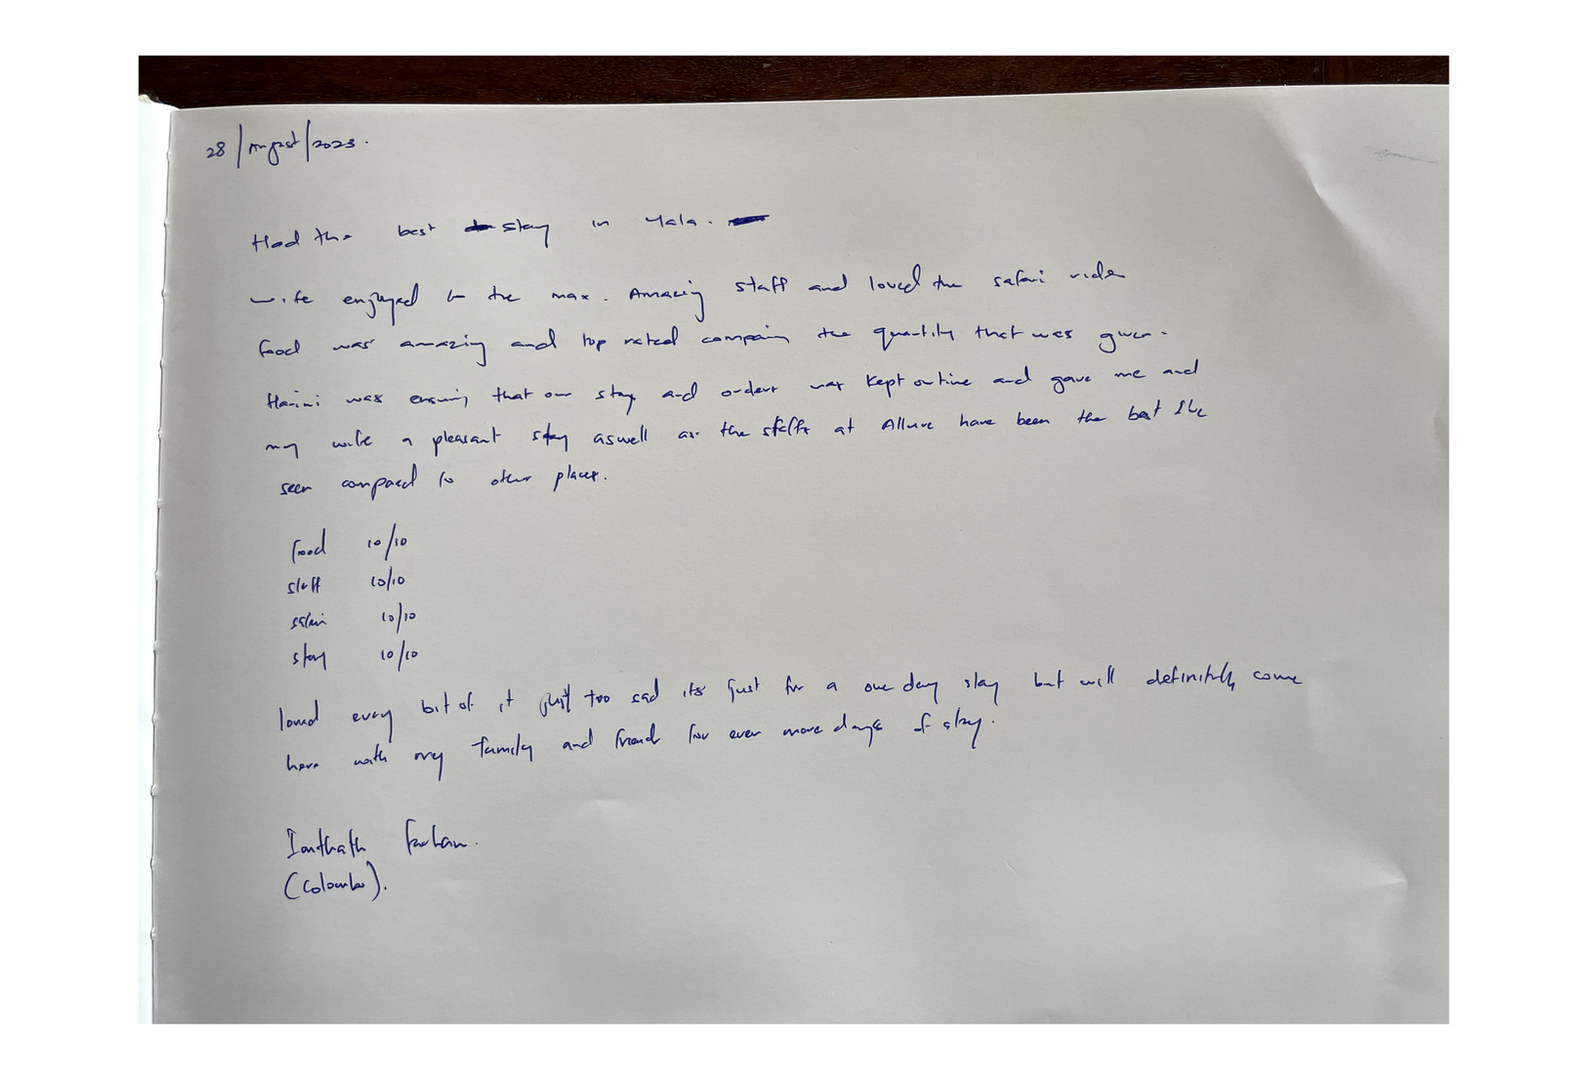 28/August/2023.
Had the best stay in Yala.
wife enjoyed to the max. Amazing staff and loved the safari ride
food was amazing and top rated comparing the quantity that was given.
was ensuring that our stay and orders was kept ontime and gave me and
my wife a pleasant stay aswell as the staffs at Allure have been the best I've
seen compared to other places.
food 10/10
staff 10/10
safari 10/10
stay 10/10
loved every bit of it just too sad its just for a one day stay but will definitely come
here with my family and friends for even more days of stay.
Farhan.
(Colombo).